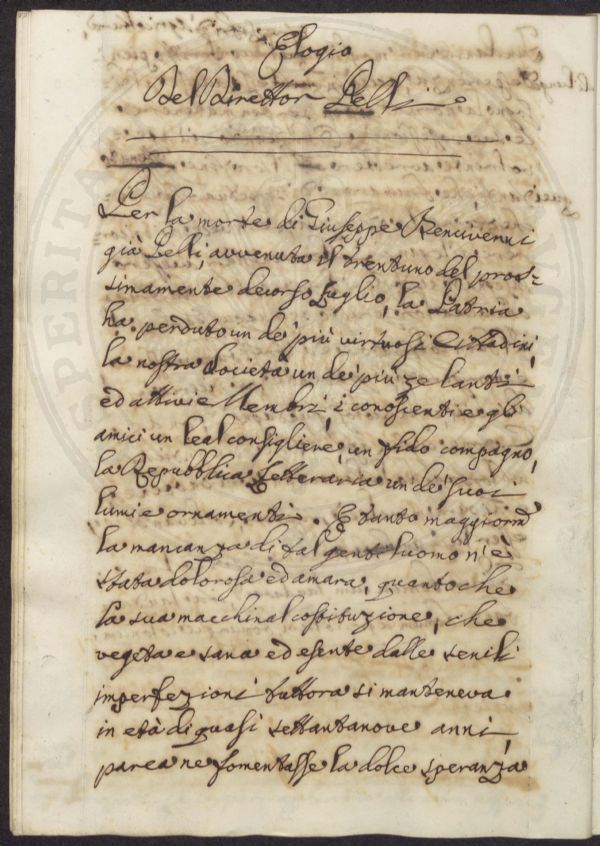 Elogio
Del Director Pelli
Per la morte di Giuseppe Bencivenni
già Pelli, avvenuta il trentuno del pros-
simamente decorso Luglio, la Patria
ha perduto un de' più virtuosi Cittadini,
la nostra Società un de' più zelanti
ed attivi Membri, i conoscenti e gli
amici un leal consigliere, un fido compagno,
la Repubblica Letteraria un de' suoi
lumi e ornamenti. E tanto maggiorm.
la mancanza di tal gentiluomo n'è
stata dolorosa ed amara, quanto che
la sua macchinal costituzione, che
vegeta e sana ed esente dalle senili
imperfezioni tuttora si manteneva
in età di quasi settantanove anni,
parea ne fomentasse la dolce speranza